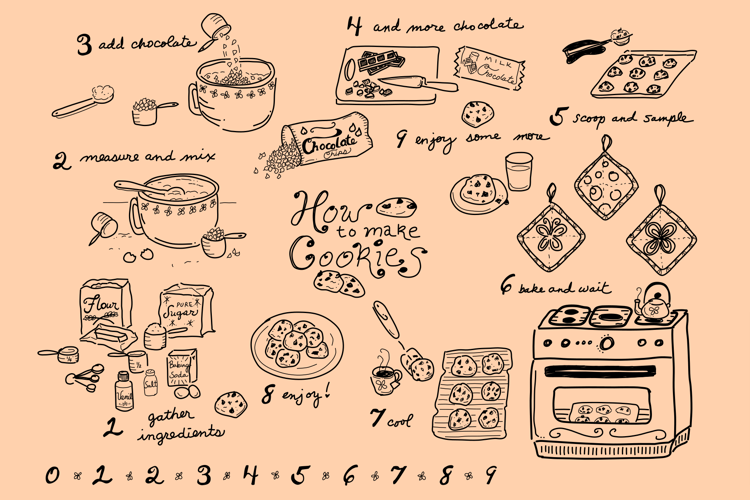 How
to make
Cookies
1 gather
ingredients
Flour
PURE
Sugar
Baking
Soda
Salt
2 measure and mix
3 add chocolate
Chocolate
Chips
4 and more chocolate
MILK
Chocolate
5 scoop and sample
6 bake and wait
7 cool
8 enjoy!
9 enjoy some more
0 1 2 3 4 5 6 7 8 9